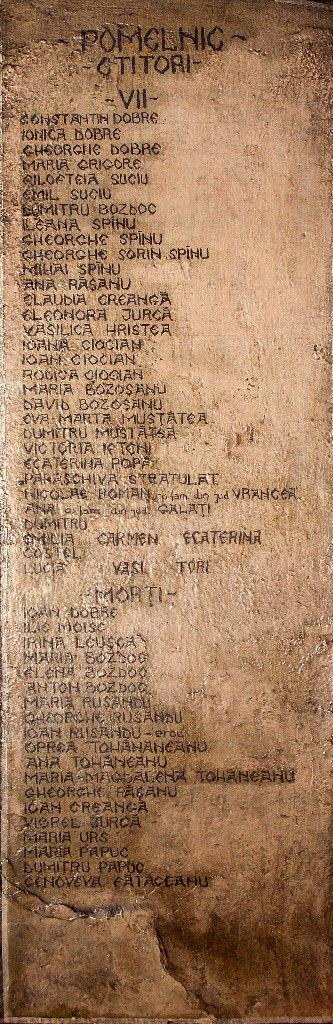 ~ POMELNIC ~
- CTITORI -
- VII -
CONSTANTIN DOBRE
IONICA DOBRE
GHEORGHE DOBRE
MARIA GRIGORE
FILOFTEIA SUCIU
EMIL SUCIU
DUMITRU BOZDOC
ILEANA SPÎNU
GHEORGHE SPÎNU
GHEORGHE SORIN SPÎNU
MIHAI SPÎNU
ANA RĂȘANU
CLAUDIA CREANGĂ
ELEONORA JURCĂ
VASILICA HRISTEA
IOANA CIOCIAN
IOAN CIOCIAN
RODICA CIOCIAN
MARIA BOZOȘANU
DAVID BOZOȘANU
EVA-MARTA MUSTĂȚEA
DUMITRU MUSTĂȚEA
VICTORIA IEȚENI
ECATERINA POPA
PARASCHIVA STRATULAT
NICOLAE ROMAN și fam din jud VRANCEA
ANA și fam din jud GALAȚI
DUMITRU
EMILIA CARMEN ECATERINA
COSTEL
LUCIA VASI TORI
~ MORȚI ~
IOAN DOBRE
ILIE MOISE
IRINA LEUȘCA
MARIA BOZDOG
ELENA BOZDOG
ANTON BOZDOG
MARIA RUSANDU
GHEORGHE RUSANDU
IOAN RUSANDU - erou
OPREA TOHĂNANEANU
ANA TOHĂNEANU
MARIA-MAGDALENA TOHĂNEANU
GHEORGHE RĂȘANU
IOAN CREANGĂ
VIOREL JURCĂ
MARIA URS
MARIA PAPUC
DUMITRU PAPUC
GENOVEVA FĂTĂCEANU